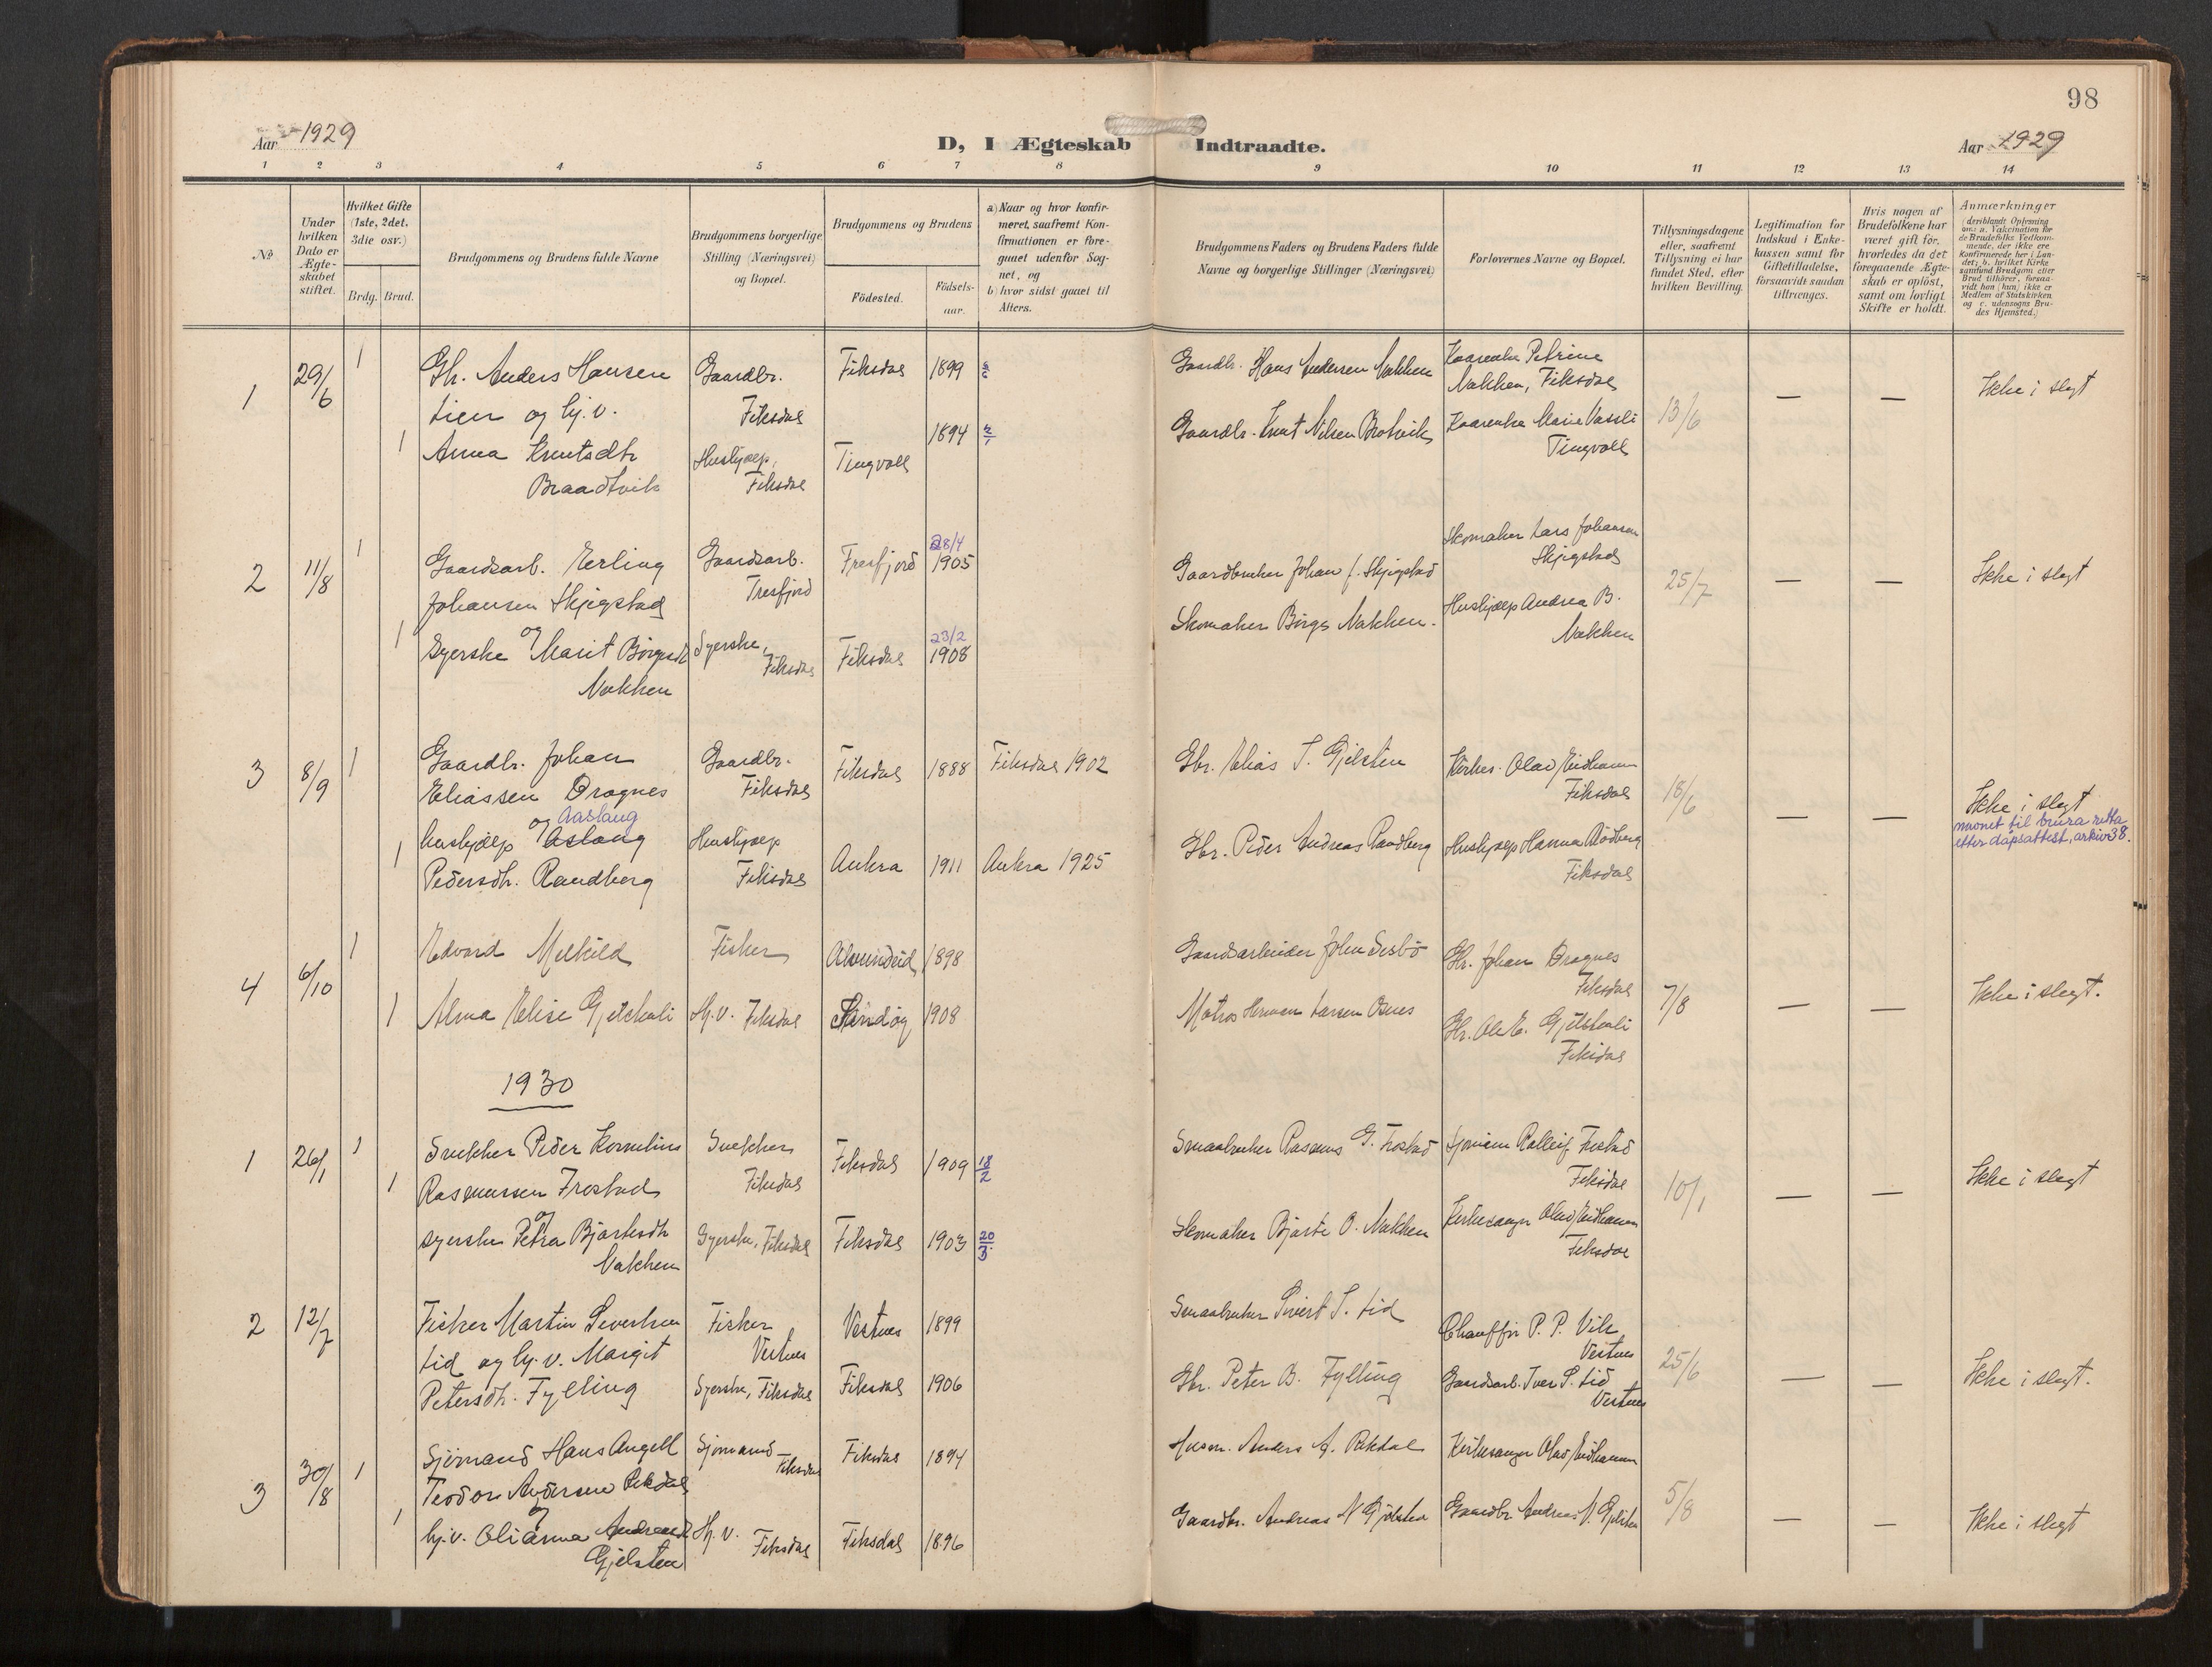 98
Aar 1929
D, I Ægteskab Indtraadte.
Aar 1929
1 2 3 4 5 6 7 8 9 10 11 12 13 14
No
Under hvilken Dato er Ægteskabet stiftet.
Hvilket Gifte (1ste, 2det, 3die osv.)
Brdg. Brud.
Brudgommens og Brudens fulde Navne
Brudgommens borgerlige Stilling (Næringsvei) og Bopæl.
Brudgommens og Brudens
Födested.
Födsels-aar.
a) Naar og hvor konfir-
meret, saafremt Kon-
firmationen er fore-
gaaet udenfor Sog-
net, og
b) hvor sidst gaaet til
Alters.
Brudgommens Faders og Brudens Faders fulde
Navne og borgerlige Stillinger (Næringsvei)
Forlovernes Navne og Bopæl.
Tillysningsdagene
eller, saafremt
Tillysning ei har
fundet Sted, efter
hvilken Bevilling.
Legitimation for
Indskud i Enke-
kassen samt for
Giftetilladelse,
forsaavidt saadan
tiltrænges.
Hvis nogen af
Brudefolkene har
været gift för,
hvorledes da det
foregaaende Ægte-
skab er oplöst,
samt om lovligt
Skifte er holdt.
Anmærkninger
(deriblandt Oplysning
om: a. Vakcination for
de Brudefolks Vedkom-
mende, der ikke ere
Konfirmerede her i Lan-
det; b. hvilket Kirke
samfund Brudgom eller
Brud tilhörer, forsaa-
vidt han (hun) ikke er
Medlem af Statskirken
og c. udensogns Bru-
des Hjemsted.)
1 29/6 1 Gbr. Anders Hansen Gaardbr. Fiksdal 1899
Lien og hj.v. Fiksdal
1 Anna Knutsdtr Hushjælp, Tingvoll 1894
Braadtvik Fiksdal
Gaardbr. Hans Andersen Nakken
Kaarenke Petrine
Nakken, Fiksdal
Gaardbr. Knut Nilsen Brotvik
Kaarenke Marie Vassli
Tingvoll
13/6 — — Ikke i slegt
2 11/8 1 Gaardsarb. Erling Gaardsarb. Tresfjord 28/4 1905
Johansen Skjegstad Tresfjord
og
1 Syerske Marit Börgesdt Syerske, Fiksdal 23/2 1908
Nakken Fiksdal
Gaardbruker Johan J. Skjegstad
Skomaker Lars Johansen
Skjegstad
Skomaker Börge Nakken.
Hushjælp Andrea B.
Nakken
25/7 — — Ikke i slegt
3 8/9 1 Gaardbr. Johan Gaardbr. Fiksdal 1888 Fiksdal 1902
Eliassen Dragnes Fiksdal
Aaslaug
1 hushjælp og Aslaug Hushjælp
Pedersdtr. Randberg Fiksdal Aukra 1911 Aukra 1925
Gbr. Elias T. Gjelsten
Kirkes. Olav Eidhamn
Fiksdal
Gbr. Peder Andreas Randberg
Hushjælp Hanna Rödberg
Fiksdal
18/6 — — Ikke i slegt
navnet til brura retta
etter dåpsattest, arkiv 38.
4 6/10 1 Edvard Melkild Fisker Alvundeid 1898
1 Alma Elise Gjelskali Hj.v. Fiksdal Sandöy 1908
Gaardsarbeider John Sesbö
Gbr. Johan Dragnes
Fiksdal
Matros Herman Larsen Osnes
Gbr. Ole E. Gjelskali
Fiksdal
7/8 — — Ikke i slegt.
1930
1 26/1 1 Snekker Peder Kornelius Snekker Fiksdal 1909 18/2
1 Rasmussen Frostad Fiksdal
og
syerske Petra Bjartesdtr Syerske, Fiksdal Fiksdal 1903 20/3
Nakken
Smaabruker Rasmus G. Frostad
Sjömann Rolleif Frostad
Fiksdal
Skomaker Bjarte O. Nakken
Kirkesanger Olav Eidhamn
Fiksdal
10/1 — — Ikke i slegt
2 12/7 Fisker Martin Severinsen Fisker Vestnes 1899
Lid og hj.v. Margit Vestnes
Petersdtr. Fylling Syerske, Fiksdal Fiksdal 1906
Smaabruker Sivert S. Lid
Chaufför P. P. Vik
Vestnes
Gbr. Peter B. Fylling
Gaardsarb. Iver S. Lid
Vestnes
25/6 — — Ikke i slegt.
3 30/8 1 Sjömand Hans Angell Sjömand Fiksdal 1894
Teodor Andersen Rekdal Fiksdal
og
1 hj.v. Olianna Andreasdt Hj.v. Fiksdal Fiksdal 1896
Gjelsten
Husm. Anders A. Rekdal
Kirkesanger Olav Eidhamn
Gaardbr. Andreas N Gjelsten
Gaardbr. Andreas N. Gjelsten
5/8 — — Ikke i slegt